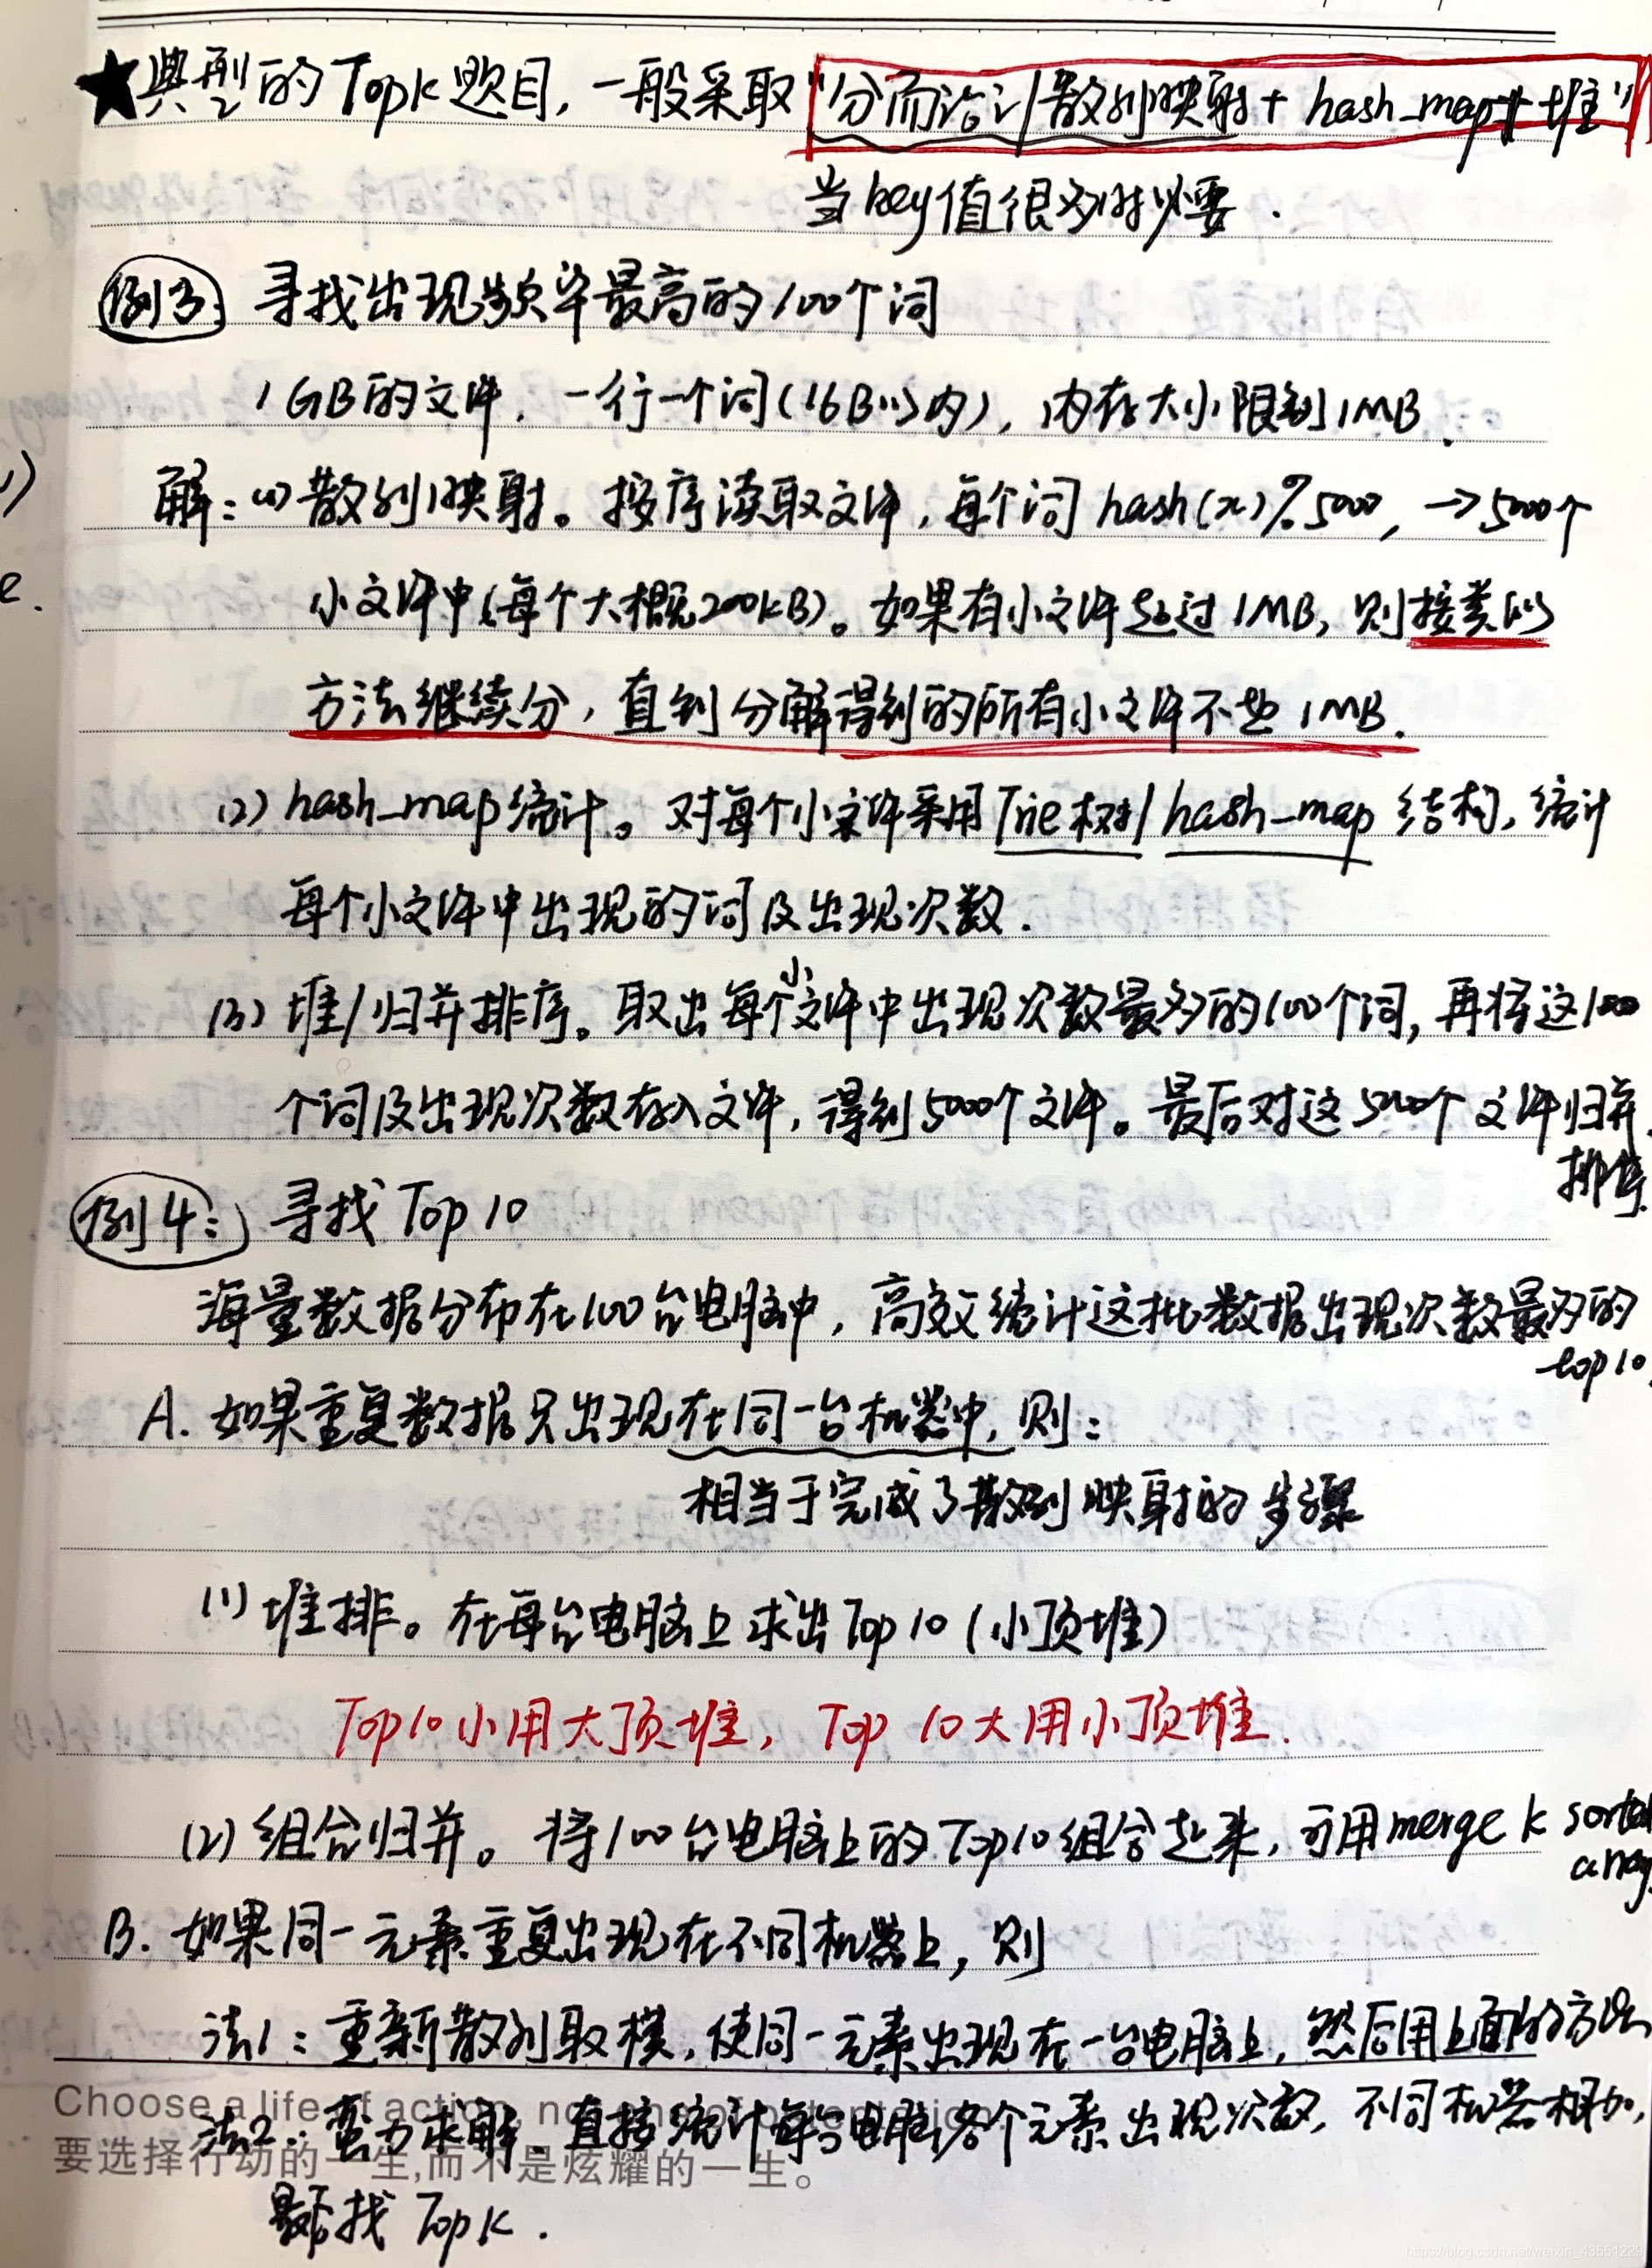 ★典型的Topk题目,一般采取"分而治之/散列映射+hash_map+堆"
当key值很多时必要.
例3: 寻找出现频率最高的100个词
1GB的文件,一行一个词(16B以内),内存大小限制1MB.
解:(1)散列映射。按序读取文件,每个词hash(x)%5000,→5000个
小文件中(每个大概200kB)。如果有小文件超过1MB,则按类似
方法继续分,直到分解得到的所有小文件不超1MB.
(2)hash_map统计。对每个小文件采用Trie树/hash_map结构,统计
每个小文件中出现的词及出现次数.
(3)堆/归并排序。取出每个小文件中出现次数最多的100个词,再将这100
个词及出现次数存入文件,得到5000个文件。最后对这5000个文件归并
排序.
例4: 寻找Top10
海量数据分布在100台电脑中,高效统计这批数据出现次数最多的
top10.
A.如果重复数据只出现在同一台机器中,则:
相当于完成了散列映射的步骤
(1)堆排。在每台电脑上求出Top10(小顶堆)
Top10小用大顶堆,Top 10大用小顶堆.
(2)组合归并。将100台电脑上的Top10组合起来,可用merge k sorted
array
B.如果同一元素重复出现在不同机器上,则
法1:重新散列取模,使同一元素出现在一台电脑上,然后用上面的方法
Choose a life of action, no
法2:蛮力求解。直接统计每台电脑各个元素出现次数,不同机器相加,
要选择行动的一生,而不是炫耀的一生。
最后找TopK.
e.
https://blog.csdn.net/weixin_43551225